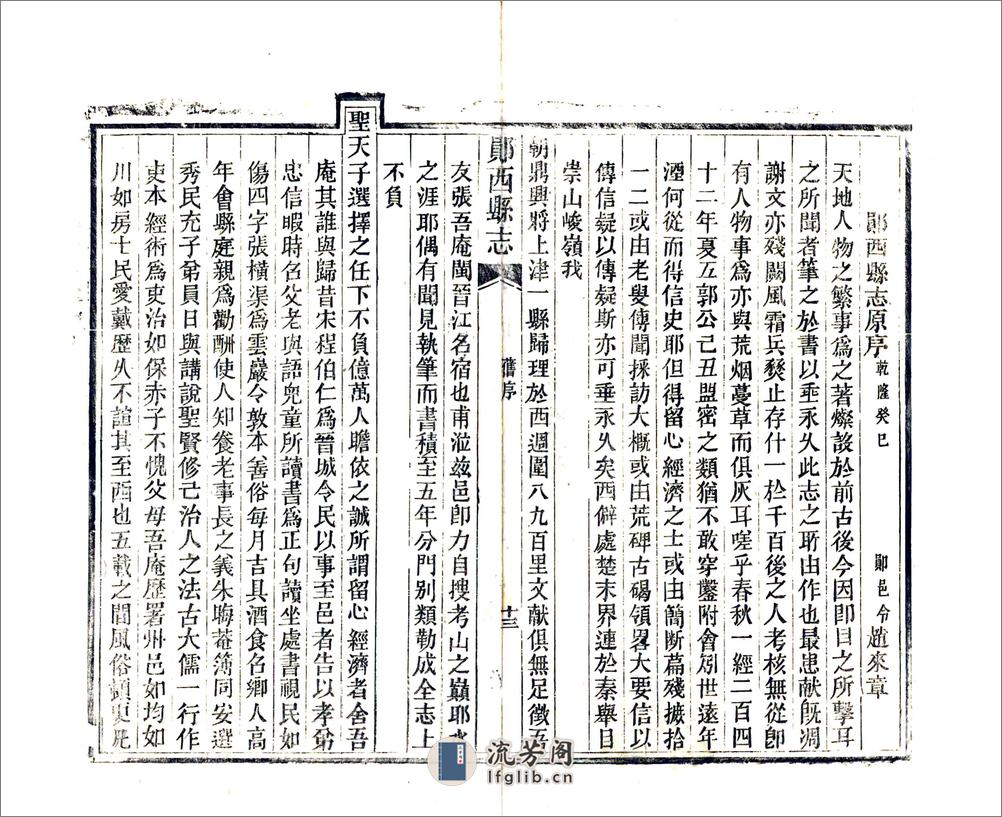 鄖西縣志原序 乾隆癸巳 鄖邑令趙來章
天地人物之繁事為之著燦該於前古後今因即目之所擊耳
之所聞者筆之於書以垂永久此志之所由作也最患献旣凋
謝文亦殘闕風霜兵燹止存什一於千百後之人考核無從即
有人物事為亦與荒烟蔓草而俱灰耳嗟乎春秋一經二百四
十二年夏五郭公己丑盟密之類猶不敢穿鑿附會矧世遠年
湮何從而得信史耶但得留心經濟之士或由簡斷篇殘摭拾
一二或由老叟傳聞採訪大概或由荒碑古碣領畧大要信以
傳信疑以傳疑斯亦可垂永久矣西僻處楚末界連於秦舉目
崇山峻嶺我
朝鼎興將上津一縣歸理於西週圍八九百里文献俱無足徵吾
鄖西縣志 舊序 十三
友張吾庵閩晉江名宿也甫涖兹邑即力自搜考山之巔耶水
之涯耶偶有聞見執筆而書積至五年分門别類勒成全志上
不負
聖天子選擇之任下不負億萬人瞻依之誠所謂留心經濟者舍吾
庵其誰與歸昔宋程伯仁為晉城令民以事至邑者告以孝弟
忠信暇時名父老與語兒童所讀書為正句讀坐處書視民如
傷四字張横渠為雲巖令敦本善俗每月吉具酒食名鄉人高
年會縣庭親為勸酬使人知養老事長之義朱晦菴簿同安選
秀民充子弟員日與講說聖賢修己治人之法古大儒一行作
吏本經術為吏治如保赤子不愧父母吾庵歷署州邑如均如
川如房士民愛戴歷久不諠其至西也五載之間風俗頓更凡
流芳阁
lfglib.cn